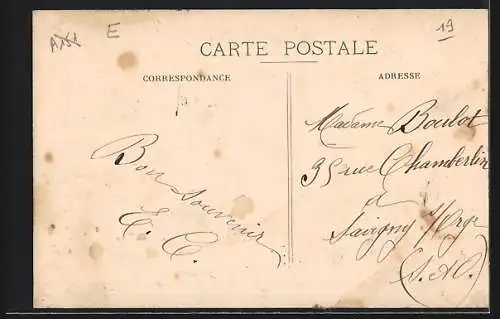 A151
E
19
CARTE POSTALE
CORRESPONDANCE
ADRESSE
Bon Souvenir
E. C.
Madame Boulot
35 rue Chamberlin
à
Savigny s/Orge
(S. & O.)